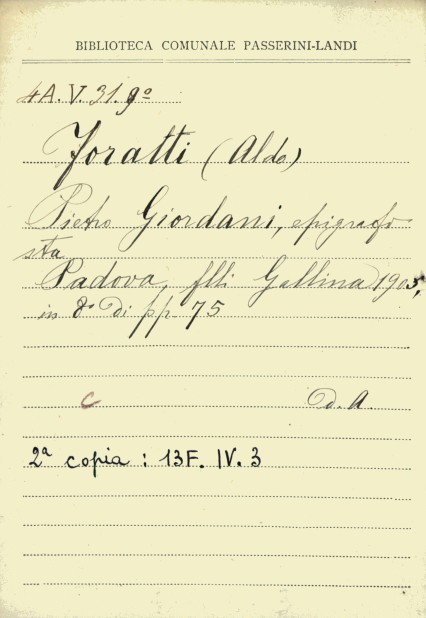 BIBLIOTECA COMUNALE PASSERINI-LANDI
4A.V.31.9º
Foratti (Aldo)
Pietro Giordani, epigrafi
sta
Padova, flli Gallina, 1905,
in 8º di pp. 75
C
D. A.
2ª copia : 13F. IV. 3